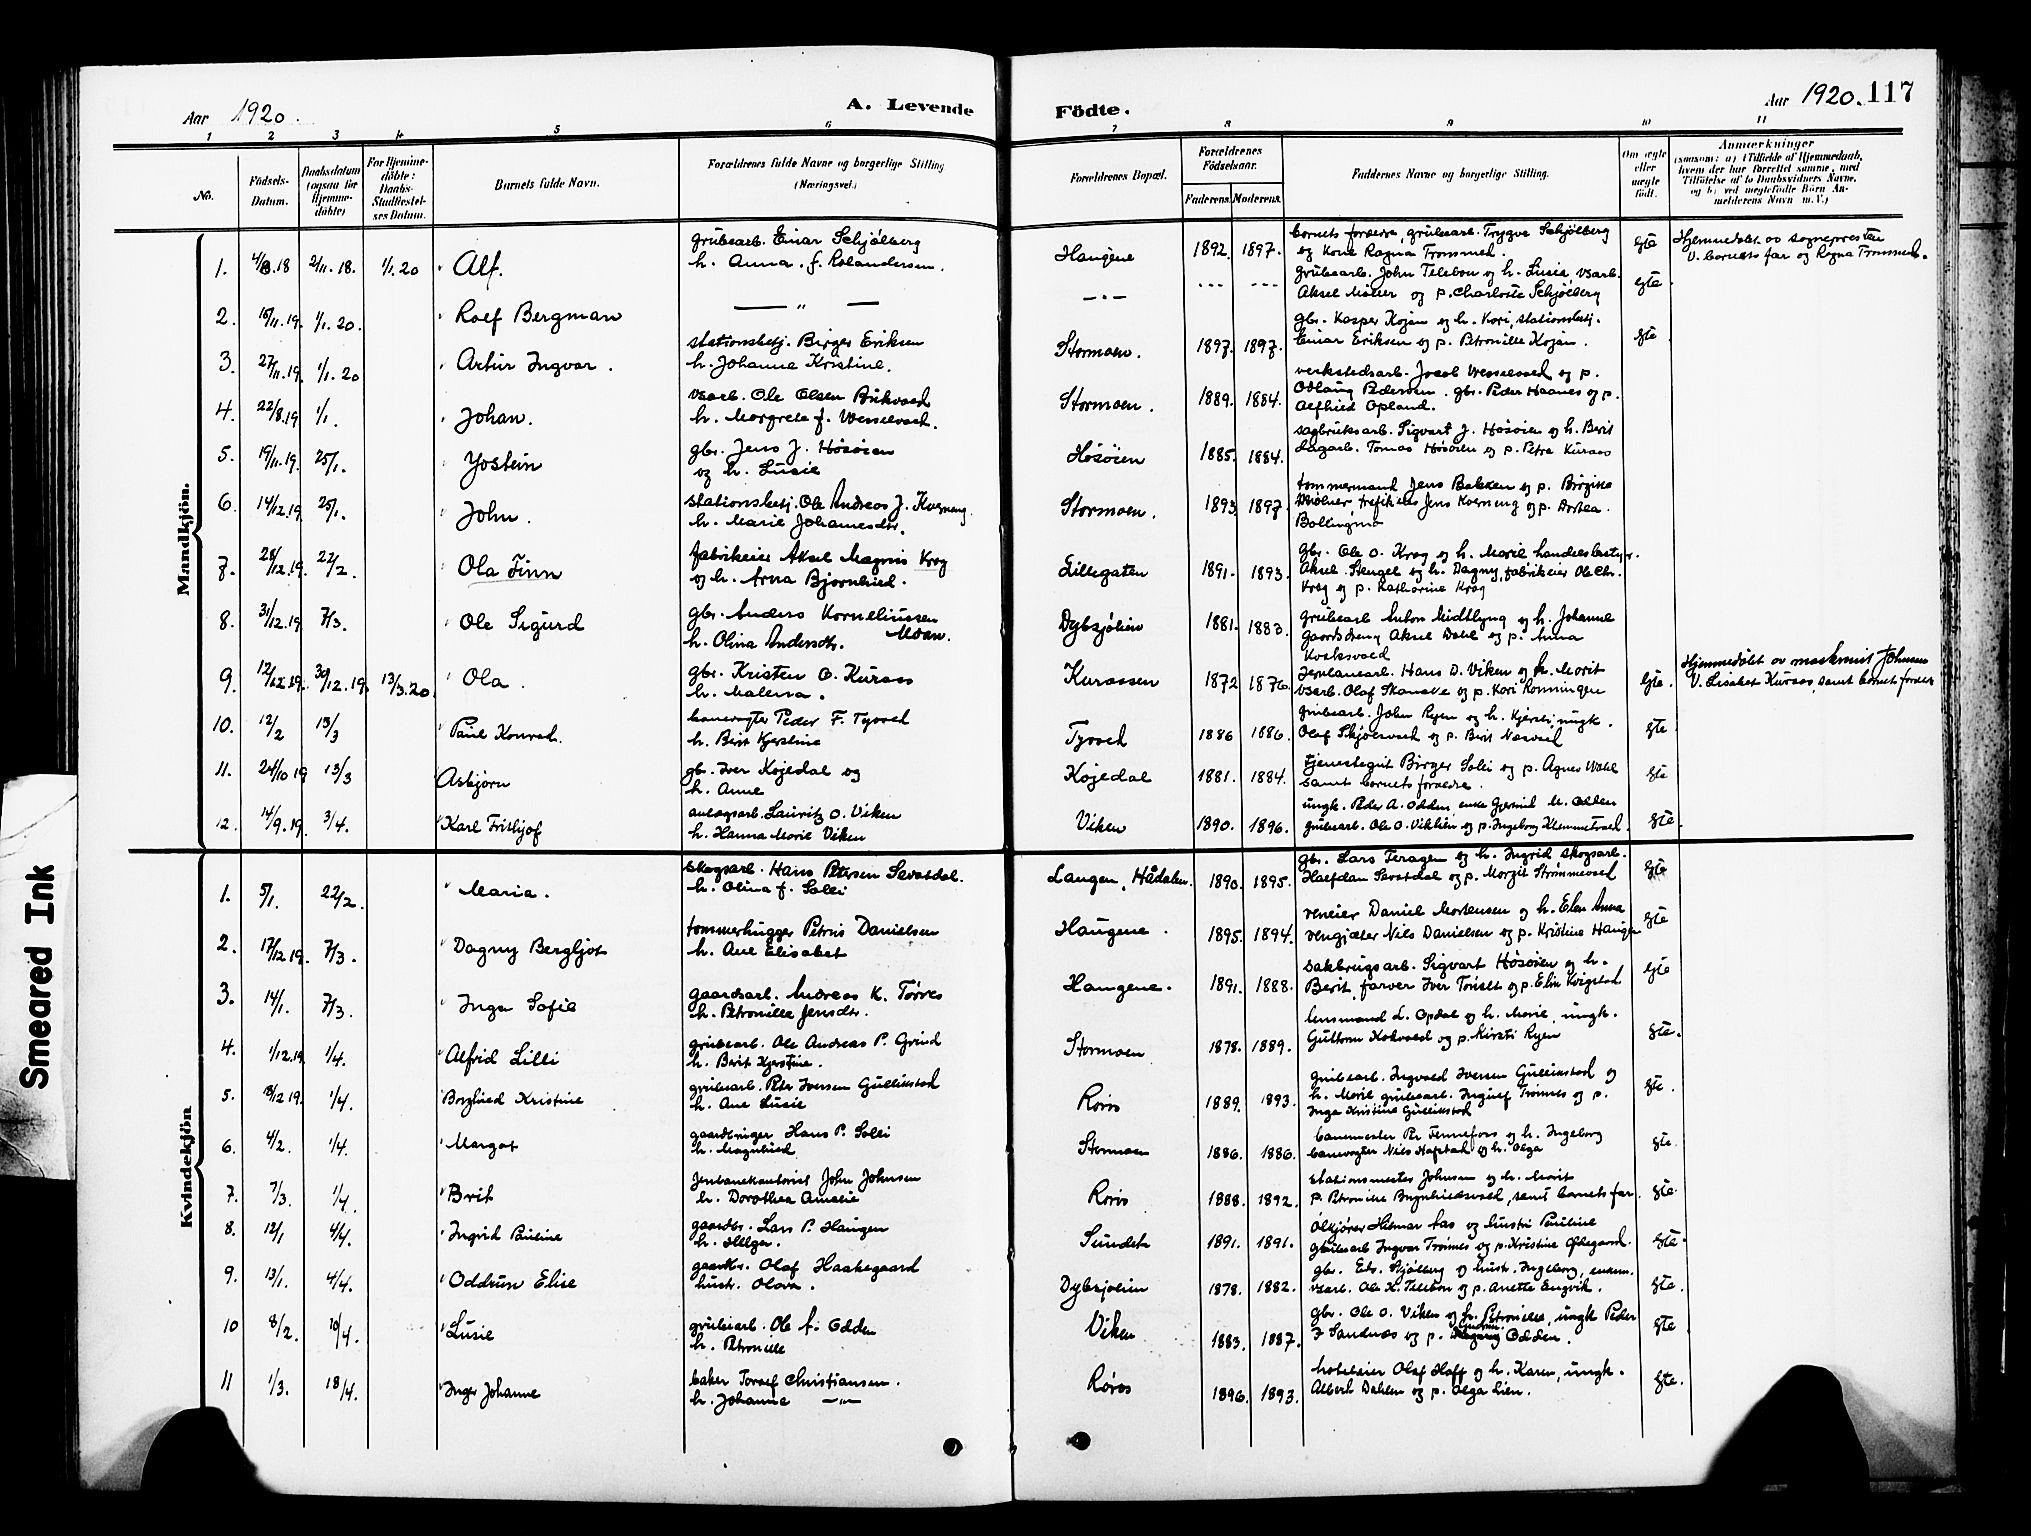 Aar 1920.
A. Levende
Födte.
Aar 1920. 117
1 2 3 4 5 6 7 8 9 10 11
No.
Födsels-
Datum.
Daabsdatum
(ogsaa for
Hjemme-
döbte)
For Hjemme-
döbte:
Daabs-
Stadfæstel-
ses Datum.
Barnets fulde Navn.
Forældrenes fulde Navne og borgerlige Stilling
(Næringsvei.)
Forældrenes Bopæl.
Forældrenes
Födselsaar.
Faderens. Moderens.
Faddernes Navne og borgerlige Stilling.
Om ægte
eller
uægte
födt.
Anmærkninger
(saasom: a) i Tilfælde af Hjemmedaab,
hvem der har forrettet samme, med
Tilföielse af to Daabsvidners Navne,
og b) ved uægtefödte Börn An-
melderens Navn m. V.)
Mandkjön.
1. 4/8.18 2/11.18. 1/1.20 Alf. grubearb. Einar Schjölberg
h. Anna. f. Rolandersen. Haugene 1892. 1897. barnets foreldre, grubearb. Trygve Schjölberg
og kone Ragna Trommed. egte Hjemmedöbt av sognepresten
V. barnets far og Ragna Trommed.
2. 15/11.19. 1/1.20. Rolf Bergman — " — — " — --- --- grubearb. John Telebon og h. Lusie vsarb.
Aksel Möller og p. Charlotte Schjölberg egte
3. 27/11.19. 1/1.20 Artur Ingvar. stationsbetj. Birger Eriksen
h. Johanna Kristine. Stormoen. 1897. 1897. gbr. Kasper Kojan og h. Kari, stationsbetj.
Einar Eriksen og p. Petronille Kojan. egte
4. 22/8.19 1/1. Johan. vsarb. Ole Olsen
h. Margrete f. Wesselvold. Stormoen. 1889. 1884. verkstedsarb. Jacob Wesselvold og p.
Odlaug Pedersen. gbr. Peder Haanes og p.
Alfhild Opland.
5. 19/11.19. 25/1. Jostein gbr. Jens J. Hösöien
og h. Lusie Hösöien 1885. 1884. sagbruksarb. Sigvart J. Hösöien og h. Berit
Sagarb. Tomas Hösöien og p. Petra Kuraas
6. 14/12.19. 25/1. John. stationsbetj. Ole Andreas J. Kverneng.
h. Marie Johannesdtr. Stormoen. 1893 1897. tommermand Jens Bakken og p. Birgitte
Jens Kverneng og p. Dortea
7. 28/12.19. 22/2. Ola Finn fabrikeier Aksel Magnus Krog
og h. Arna Bjornhild. Lillegaten 1891. 1893. gbr. Ole O. Krog og h. Marie handelsbestyr.
Aksel Stengel og h. Dagny, fabrikeier Ole Chr.
Krog og p. Katharine Krog
8. 31/12.19. 7/3. Ole Sigurd gbr. Anders Korneliussen
Moan.
h. Olina Andersdtr. Dybsjölien 1881. 1883. grubearb Anton Midtlyng og h. Johanne
gaardsdreng Aksel Dahl og p. Anna
Kvaksvold
9. 12/12.19. 30/12.19. 13/3.20 Ola. gbr. Kristen O. Kuraas
h. Malena. Kuraasen 1872 1876. Jernbanearb. Hans D. Viken og h. Marit
vsarb. Olaf Skancke og p. Kari Ronningen egte. Hjemmedöbt av maskinist Johnsen
V. Lisabet Kuraas, samt barnets foreldr
10. 12/2 13/3 Paul Konrad. banevogter Peder F. Tyvold
h. Berit Kjerstine Tyvold 1886 1886. grubearb. John Ryen og h. Kjersti, ungk.
Olaf Skjölsvold og p. Berit Næsvold egte
11. 24/10 19 13/3 Asbjörn gbr. Iver Kojedal og
h. Anne Kojedal 1881. 1884. tjenestegut Birger Solli og p. Agnes Wahl
samt barnets foreldre. egte
12. 14/9.19. 3/4. Karl Frithjof anlægsarb. Lauritz O. Viken
h. Hanna Marie Viken Viken 1890. 1896. ungk. Peder A. Odden, enke Gjertrud M. Odden
grubearb. Ole O. Viklien og p. Ingeborg Klemmetvold. egte.
Kvindekjön
1. 5/1. 22/2. Maria. Skogsarb. Hans Petersen Sevatdal.
h. Olina f. Solli Langen, Hådalen. 1890. 1895. gbr. Lars Feragen og h. Ingrid, skogsarb.
Halfdan Sevatdal og p. Margit Strömmevold egte
2. 17/12 19. 7/3. Dagny Bergljot tommerhugger Petrus Danielsen
h. Ane Elisabet Haugene. 1895. 1894. reneier Daniel Mortensen og h. Elen Anna
rengjæter Nils Danielsen og p. Kristine Haugen egte
3. 14/1. 7/3. Inga Sofie gaardsarb. Andreas K. Törres
h. Petronille Jensdtr. Haugene. 1891. 1888. sakbrugsarb. Sigvart Hösöien og h.
Berit, farver Iver Tonset og p. Elin Kvigstad egte
4. 1/12.19 1/4. Alfrid Lilli grubearb. Ole Andreas P. Grind
h. Berit Kjerstine. Stormoen 1878. 1889. lensmand L. Opdal og h. Marie, ungk.
Guttorm Kokvold og p. Kirsti Ryen egte.
5. 18/12 19. 1/4. Borghild Kristine grubearb. Peter Iversen Gullikstad
h. Ane Lusie Röros 1889. 1893. grubearb. Ingvald Iversen Gullikstad og
h. Marie grubearb. Ingulf Trönnes og p.
Inga Kristine Gullikstad egte.
6. 4/2. 1/4. Margot gaardbruger Hans P. Solli
h. Magnhild Stormoen 1886. 1886. banemester Per Tennefoss og h. Ingeborg
banevogter Nils Hafstad og h. Olga egte.
7. 7/3. 1/4 Brit Jernbanekontorist John Johnsen
h. Dorothea Amalie Röros 1888. 1892. stationsmester Johnsen og h. Marit
p. Petronille Brynhildsvold, samt barnets far. egte.
8. 12/1 4/4. Ingrid Pauline gaardbr. Lars P. Haugen
h. Helga. Sundet 1891. 1891. Ölkjörer Hilmar Aas og hustru Pauline
grubearb Ingvar Trönnes og p. Kristine Ödegaard. egte.
9. 13/1. 4/4. Oddrun Elise gaardbr. Olaf Haakegaard
hustr. Olava. Dybsjolien 1878. 1882. gbr. Edv. Sjölberg og hustr. Ingeborg, enkem.
vsarb. Ole K. Telebon og p. Anette Engvik. egte.
10 8/2. 10/4. Lusie grubearb. Ole A. Odden
h. Petronille Viken 1883. 1887. gbr. Ole O. Viken og h. Petronille, ungk. Peder
J Sandnæs og p. Gudrun Odden. egte
11 1/3. 18/4. Inger Johanne baker Toralf Christiansen.
h. Johanne —"— Röros 1896. 1893. hoteleier Olaf Hoff og h. Karen, ungk.
Albert Dahlen og p. Olga Lien. egte.
Smeared Ink